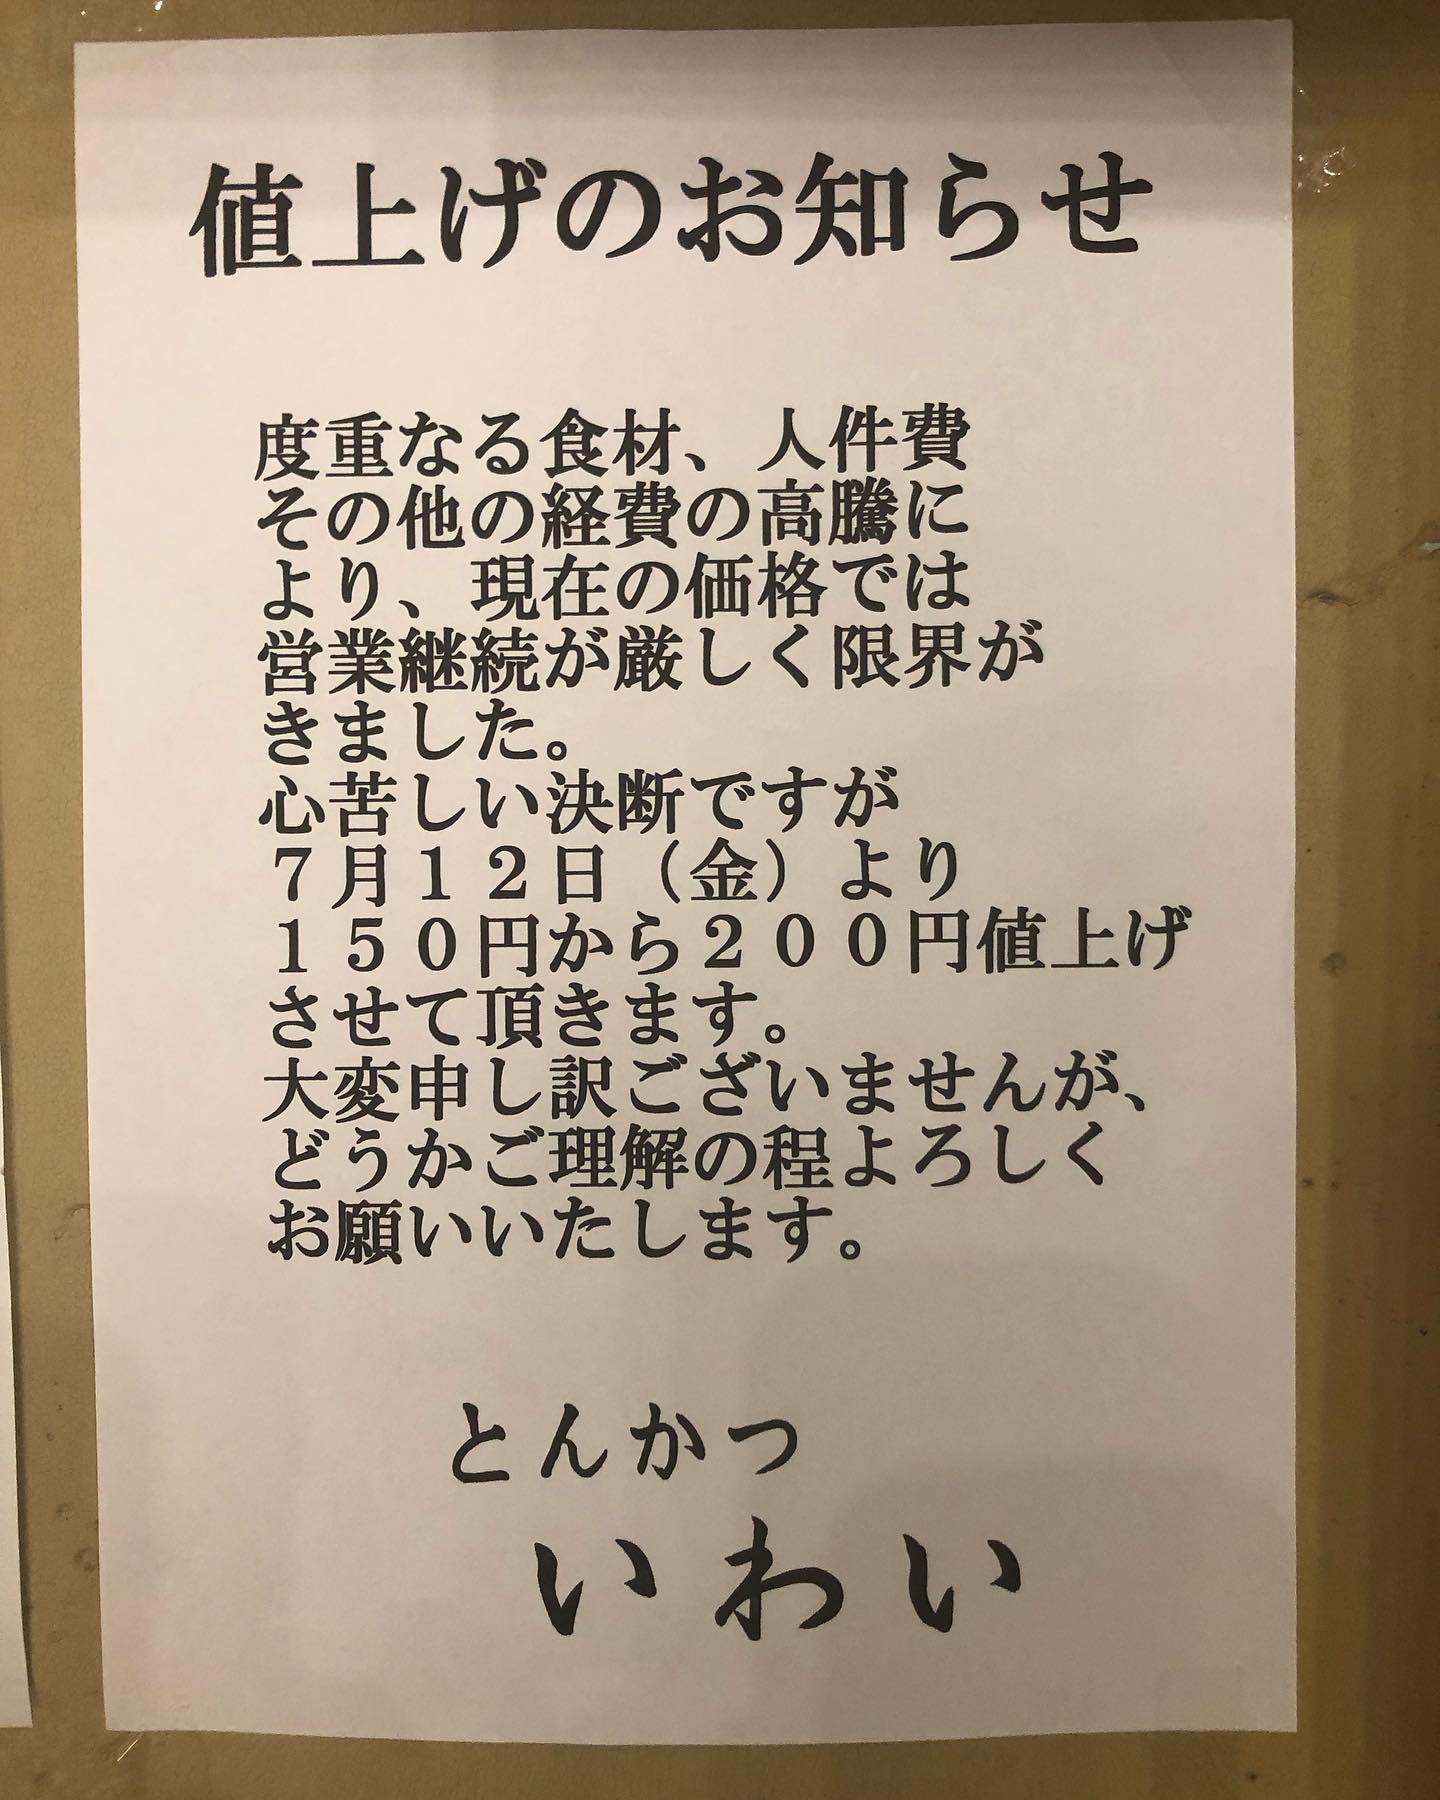 値上げのお知らせ
度重なる食材、人件費
その他の経費の高騰に
より、現在の価格では
営業継続が厳しく限界が
きました。
心苦しい決断ですが
７月１２日（金）より
１５０円から２００円値上げ
させて頂きます。
大変申し訳ございませんが、
どうかご理解の程よろしく
お願いいたします。
とんかつ
いわい